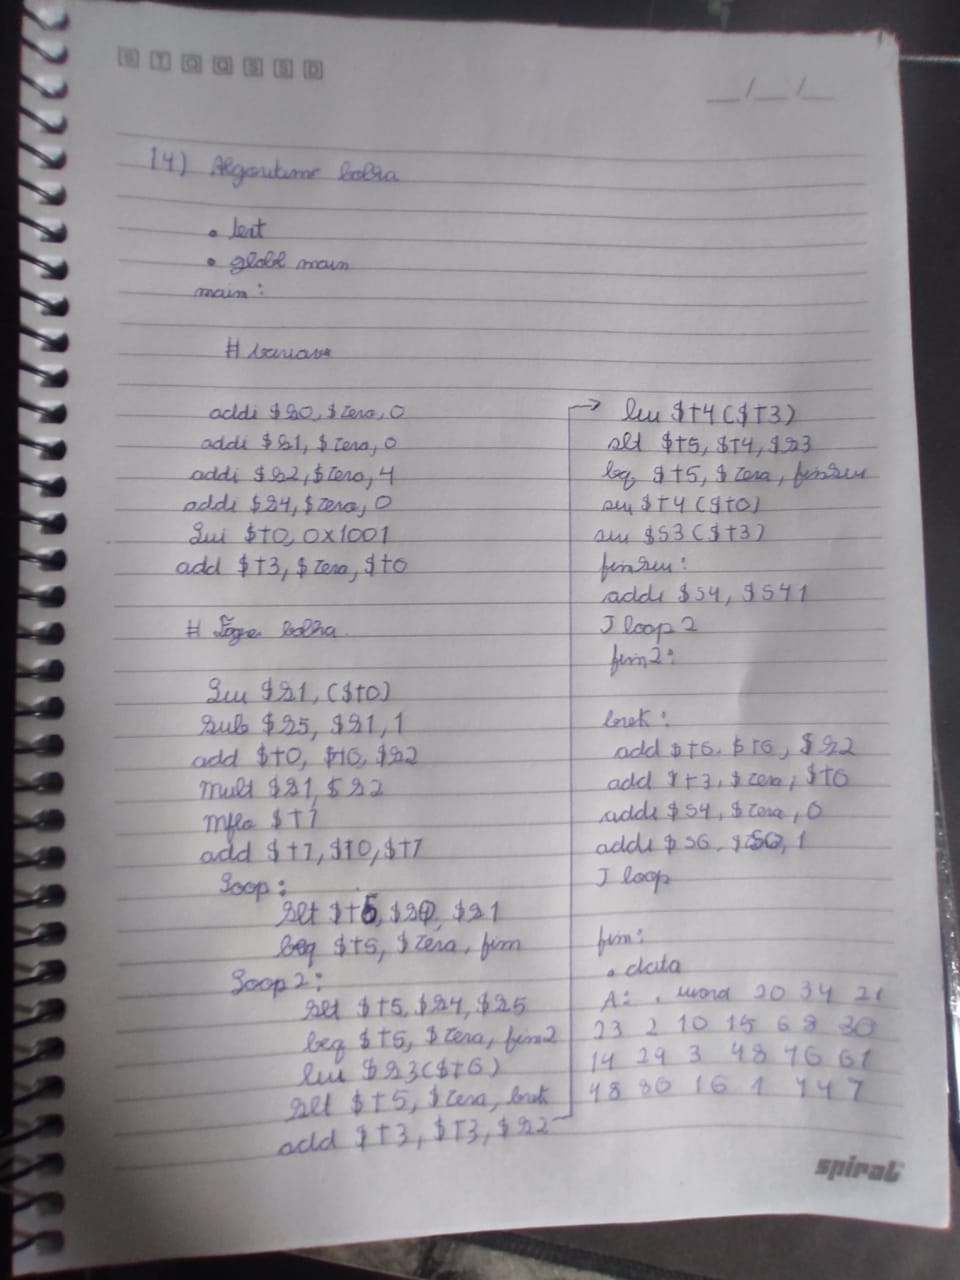 S T Q Q S S D
__/__/__
14) Algoritimo bolha
. text
. globl main
main:
# 
addi $s0, $zero, 0
addi $s1, $zero, 0
addi $s2, $zero, 4
addi $s4, $zero, 0
lui $t0, 0x1001
add $t3, $zero, $t0
# bolha
lw $s1, ($t0)
sub $s5, $s1, 1
add $t0, $t0, $s2
mult $s1, $s2
mflo $t7
add $t7, $t0, $t7
loop:
slt $t5, $s0, $s1
beq $t5, $zero, fim
loop2:
slt $t5, $s4, $s5
beq $t5, $zero, fim2
lw $s3($t6)
slt $t5, $zero,
add $t3, $t3, $s2
lw $t4($t3)
slt $t5, $t4, $s3
beq $t5, $zero,
sw $t4($t0)
sw $s3($t3)
addi $s4, $s4 1
J loop2
fim2:
add $t6, $t6, $s2
add $t3, $zero, $t6
addi $s4, $zero, 0
addi $s6, $s0, 1
J loop
fim:
. data
A: . word 20 34 21
23 2 10 15 6 8 30
14 29 3 48 46 61
48 80 16 1 44 7
spiral